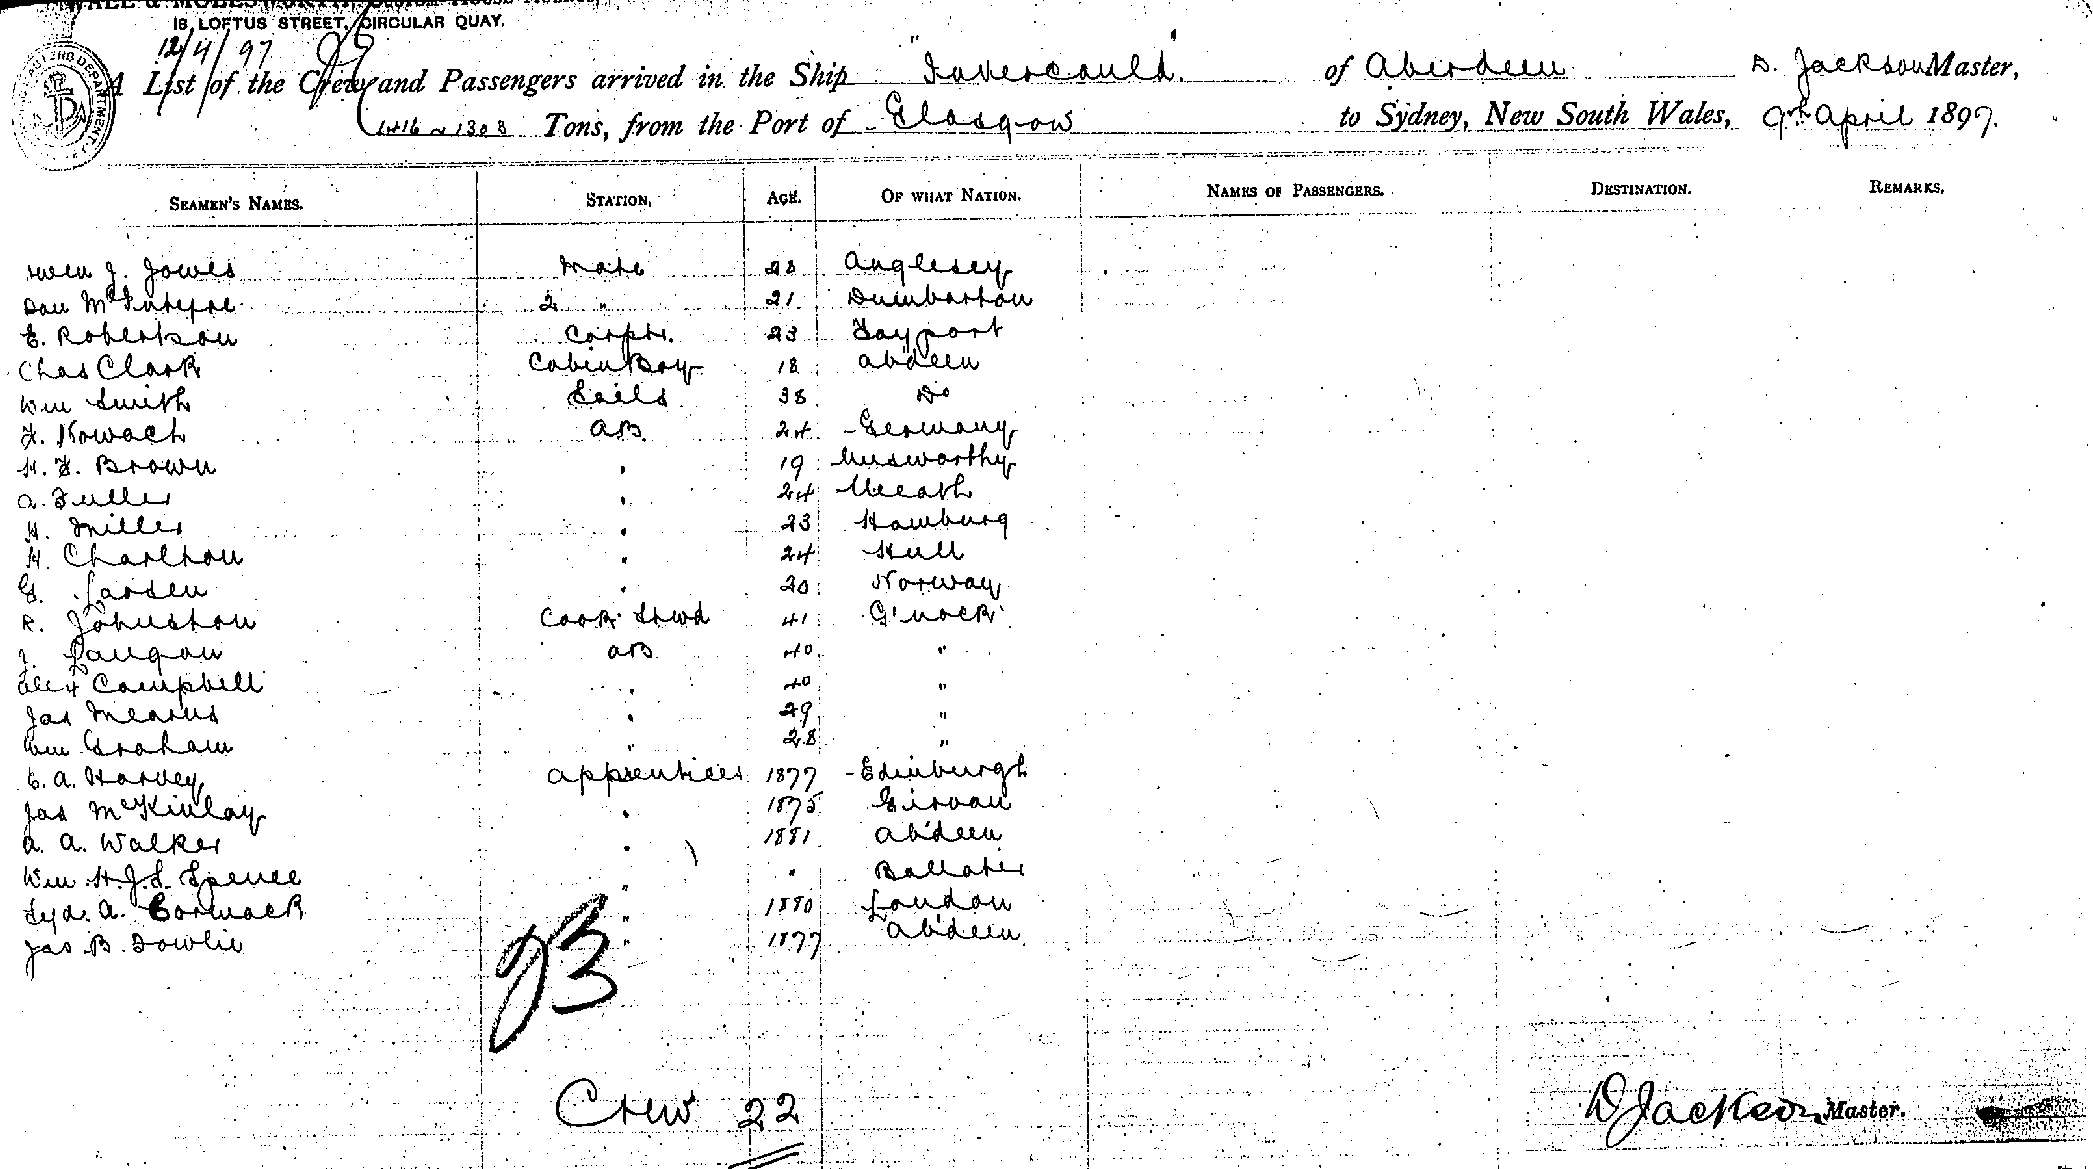 18, LOFTUS STREET, CIRCULAR QUAY.
12/4/97
A List of the Crew and Passengers arrived in the Ship "Invercauld" of Aberdeen D. Jackson Master,
1416 ~ 1303 Tons, from the Port of Glasgow to Sydney, New South Wales, 9th April 1897.
SEAMEN'S NAMES. STATION, AGE. OF WHAT NATION. NAMES OF PASSENGERS. DESTINATION. REMARKS.
Owen J. Jones Mate 28 Anglesey
Dan McIntyre 2 " 21 Dumbarton
E. Robertson Carptr. 23 Tayport
Chas Clark Cabin Boy 18 Abdeen
Wm Smith Sails 38 Do
F. Nowack AB 24 Germany
H. F. Brown " 19
A. Fuller " 24 Meath
H. Miller " 23 Hamburg
H. Charlton " 24 Hull
G. Larsen " 20 Norway
R. Johnston Cook Stwd 41 G'nock
Langan AB 40 "
Alex Campbell " 40 "
Jas Mearns " 29 "
Wm Graham " 28 "
C. A. Harvey Apprentices 1877 Edinburgh
Jas McKinlay " 1875 Girvan
A. A. Walker " 1881 Abdeen
Wm H. J. S. Spence " " Ballater
Syd. A. Cormack " 1880 London
Jas B. Fowlie " 1877 Abdeen
Crew 22
D Jackson Master.